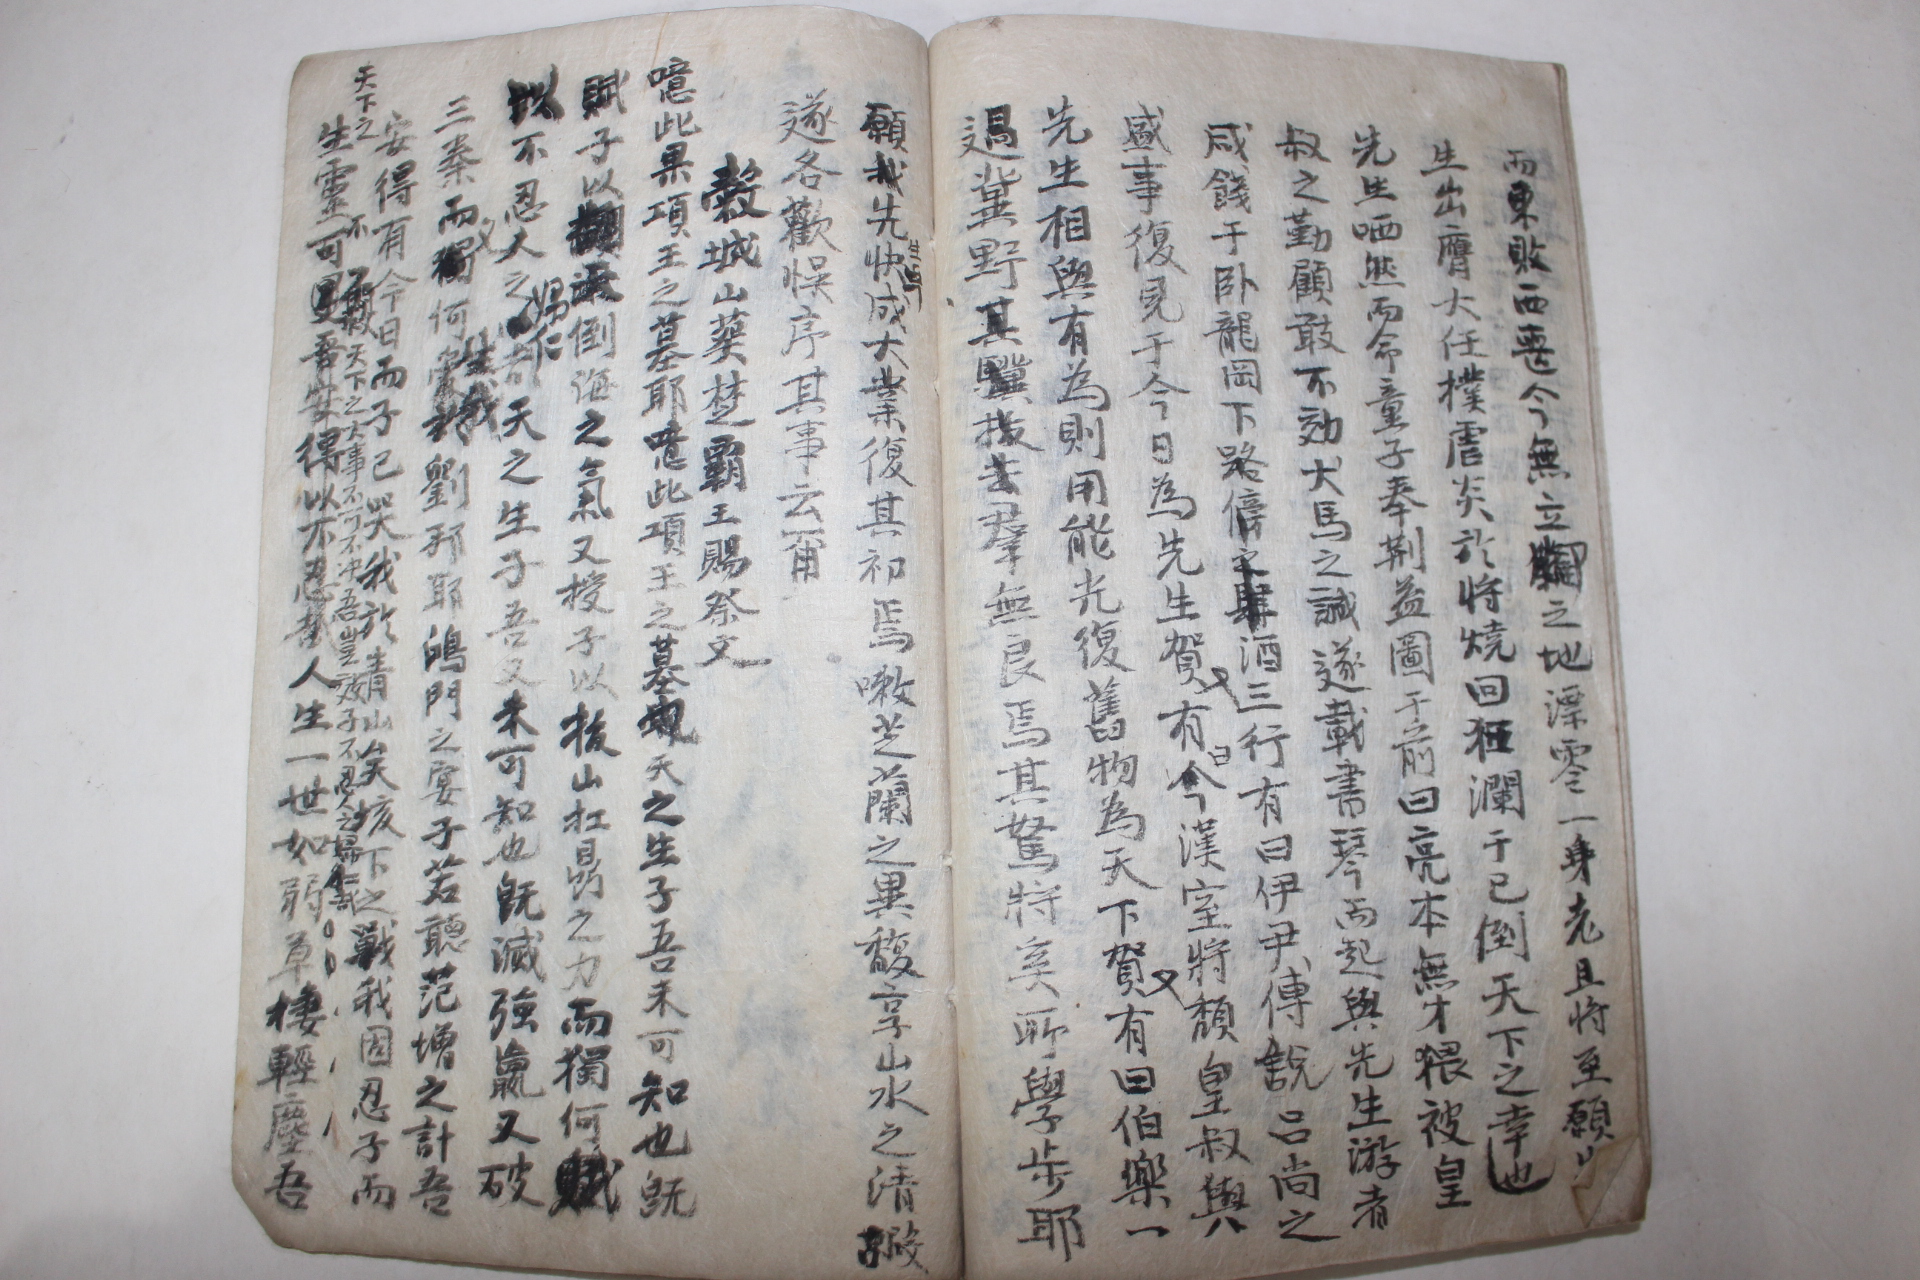 而東敗西喪今無立之地漂零一身老且將至願
生出膺大任撲虐炎於將燒回狂瀾于已倒天下之幸也
先生哂然而命童子奉荆益圖于前曰亮本無才猥被皇
叔之勤顧敢不効犬馬之誠遂載書琴而起與先生游者
咸餞于卧龍岡下路傍酒三行有曰伊尹傅說呂尚之
盛事復見于今日為先生賀有曰今漢室將頹皇叔與
先生相與有為則用能光復舊物為天下賀有曰伯樂一
過冀野其驥拔去群無良焉其駑將奚所學步耶
願我先快成大業復其初焉嗽芝蘭之異馥享山水之清
遂各歡悞序其事云爾
穀城山葬楚霸王賜祭文
噫此果項王之墓耶噫此項王之墓天之生子吾未可知也旣
賦子以倒海之氣又授子以拔山扛鼎之力而獨何
以不忍人之婦仁天之生子吾又未可知也旣滅強嬴又破
三秦而獨何劉邦耶鴻門之宴子若聽范增之計吾
安得有今日而子已哭我於青山矣垓下之戰我固忍子而
天下之
生靈可天下之大事不可不冲吾豈效子不忍人之婦仁哉
吾安得以不忍人生一世如弱草棲輕塵吾